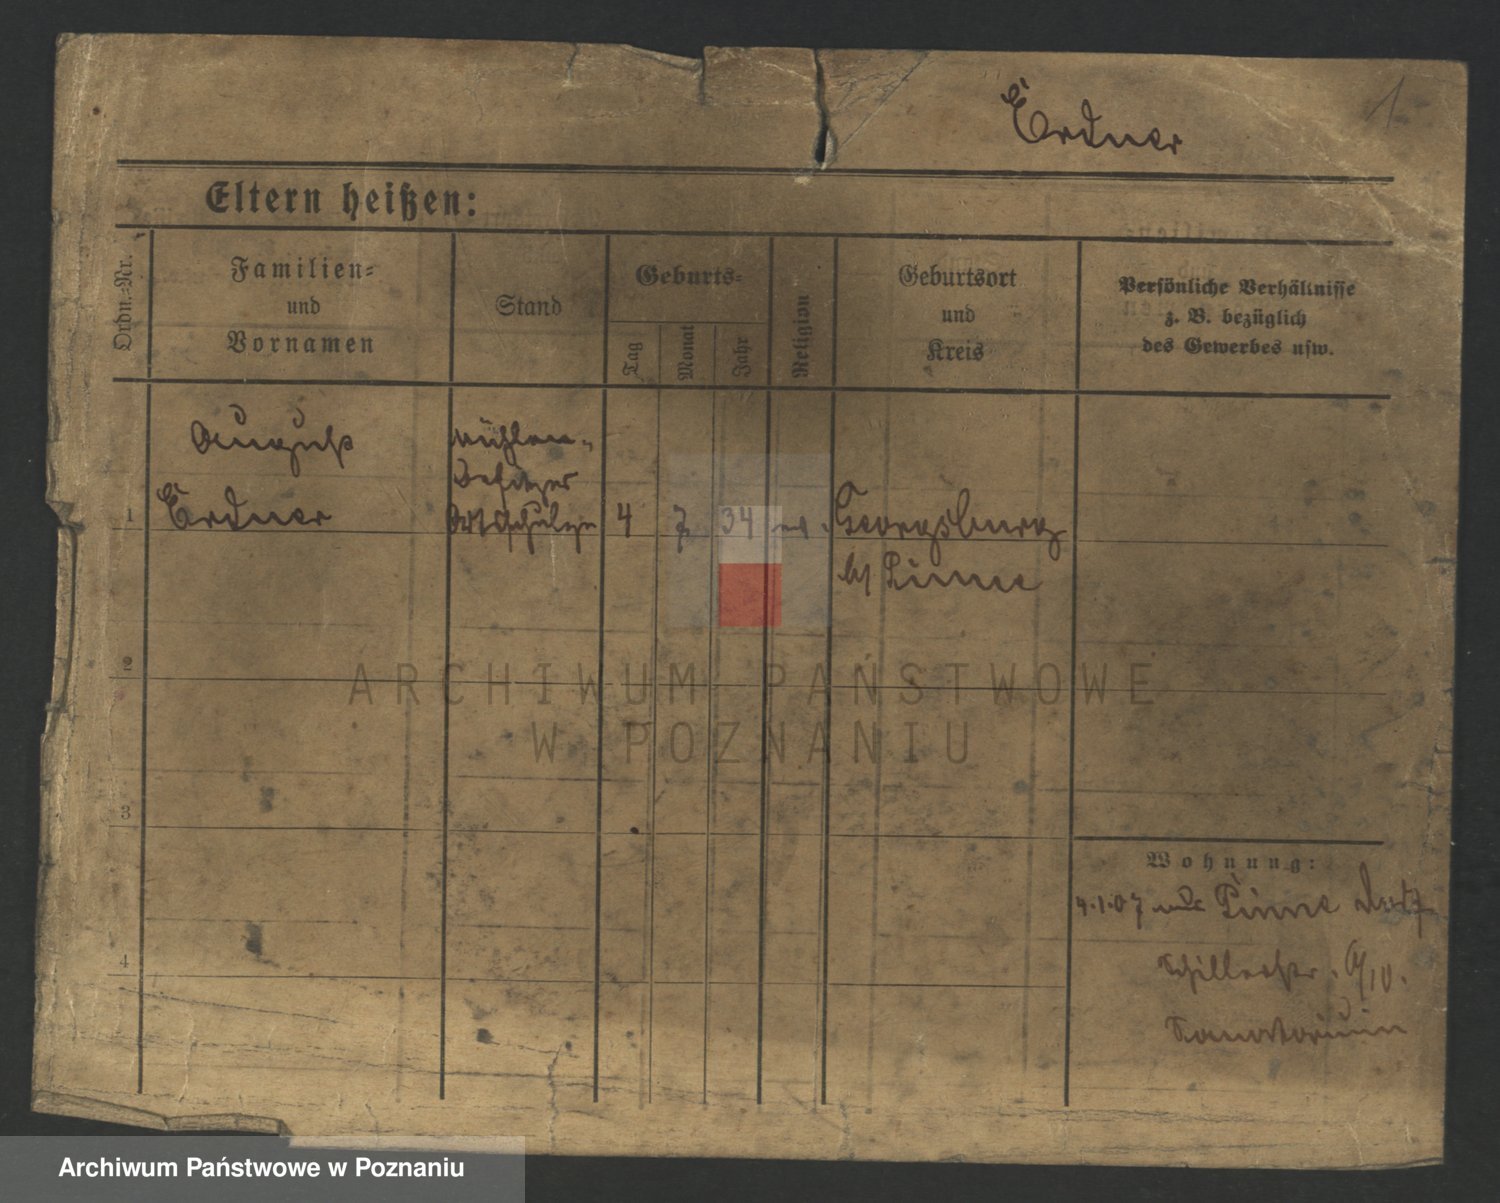 1
Erdner
Eltern heißen:
Ordn.-Nr.
Familien-
und
Vornamen
Stand
Geburts-
Tag
Monat
Jahr
Religion
Geburtsort
und
Kreis
Persönliche Verhältnisse
z. B. bezüglich
des Gewerbes usw.
August
Erdner
Mühlen-
besitzer
Ortsschulze
1
4
7
34
ev.
Georgsburg
b/ Pinne
2
3
4
Wohnung:
4.1.07 Pinne
Schillerstr. 9/10.
Sanatorium
ARCHIWUM PAŃSTWOWE
W POZNANIU
Archiwum Państwowe w Poznaniu